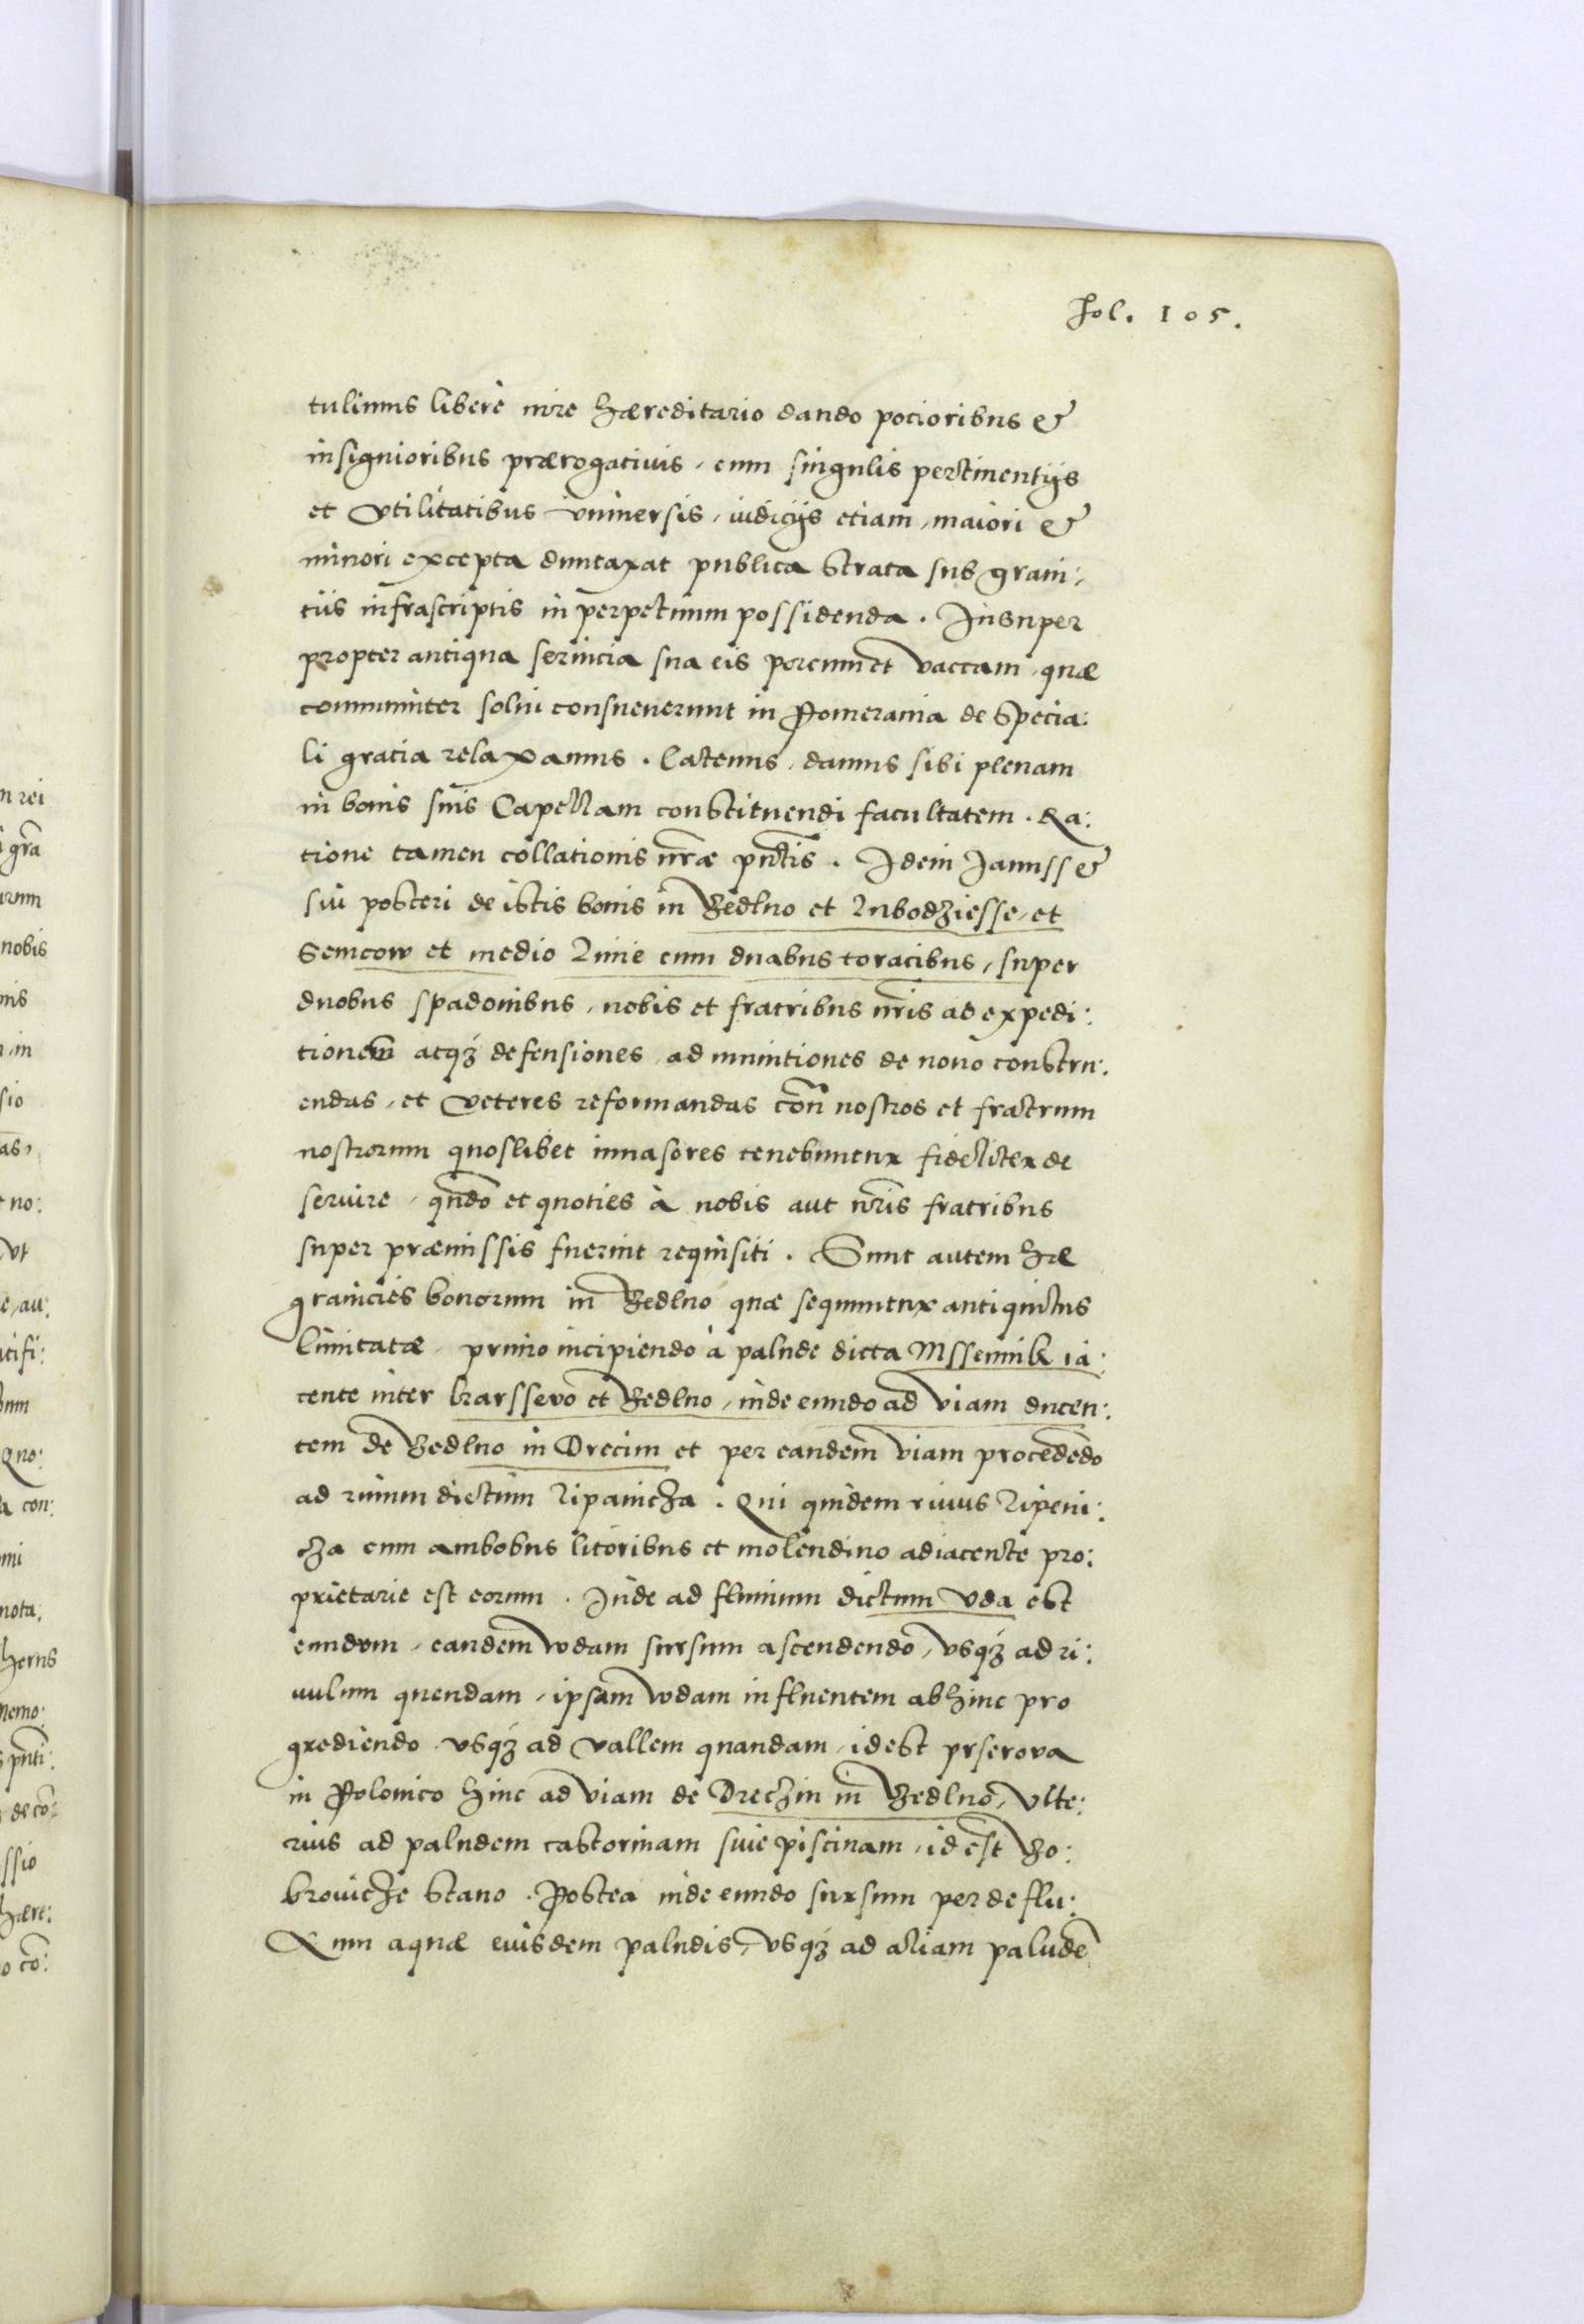 Fol. 105.
tulimus liberè iure hæreditario dando pocioribus &
insignioribus prærogatiuis, cum singulis pertinentijs
et vtilitatibus vniuersis, iudicijs etiam, maiori &
minori excepta duntaxat publica strata sub grani:
tiis infrascriptis in perpetuum possidenda. Insuper
propter antiqua seruicia sua eis porcum et vaccam, quæ
communiter solui consueuerunt in Pomerania de Specia:
li gratia relaxamus. Catenus, damus sibi plenam
in bonis suis Capellam constituendi facultatem. Ra:
tione tamen collationis nr̃æ pñtis. Idem Januss &
sui posteri de istis bonis in Zedlno et Lubodziesse, et
Semcow et medio Linie cum duabus toracibus, super
duobus spadonibus, nobis et fratribus nr̃is ad expedi:
tionem atq3 defensiones, ad munitiones de nouo constru:
endas, et veteres reformandas con̄ nostros et fratrum
nostrorum quoslibet inuasores tenebuntur fideliter de
seruire, qñdo et quoties à nobis aut nr̃is fratribus
super præmissis fuerint requisiti. Sunt autem hæ
granicies bonorum in Zedlno quæ sequuntur antiquitus
limitatæ, primo incipiendo à palude dicta Mssennik ia:
cente inter brarssevo et Zedlno, inde eundo ad viam ducen:
tem de Zedlno in Drecim et per eandem viam procededo
ad riuum dictum Lipanicza. Qui quidem riuus Lipeni:
cza cum ambobus litoribus et molendino adiacente pro:
prietarie est eorum. Inde ad fluuium dictum vda est
eundem, eandem wdam sursum ascendendo, vsq3 ad ri:
uulum quendam, ipsam wdam influentem abhinc pro
grediendo vsq3 ad vallem quandam, id est prserova
in Polonico hinc ad viam de Dreczin in Zedlno, vlte:
rius ad paludem castorinam siue piscinam, id est Bo:
brouicze stano. Postea inde eundo sursum per deflu:
xum aquæ eiusdem paludis, vsq3 ad aliam paludē